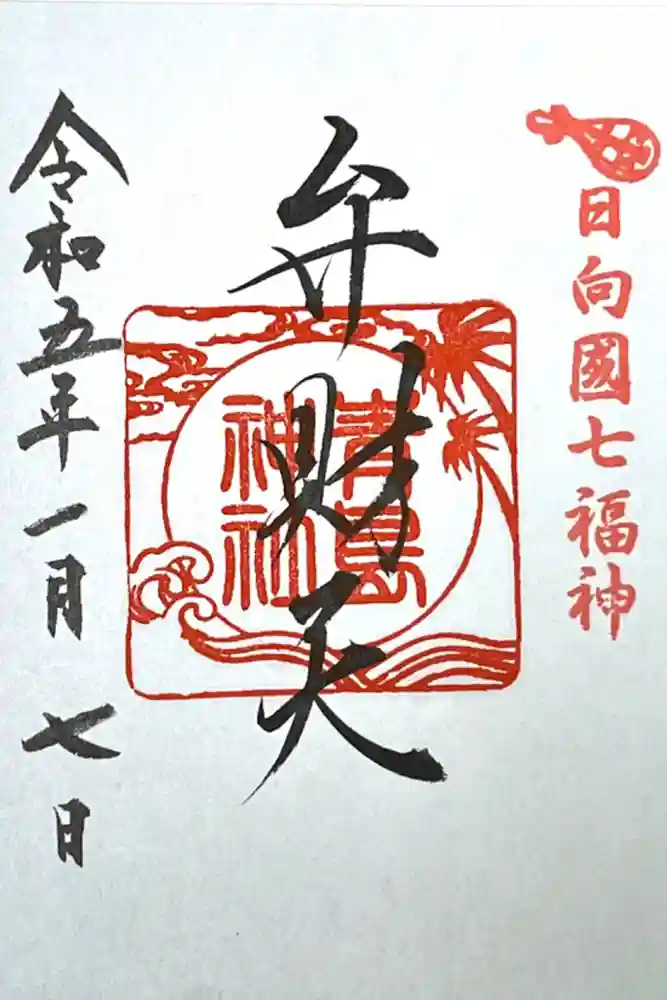 日向國七福神
弁財天
青島
神社
令和五年一月七日